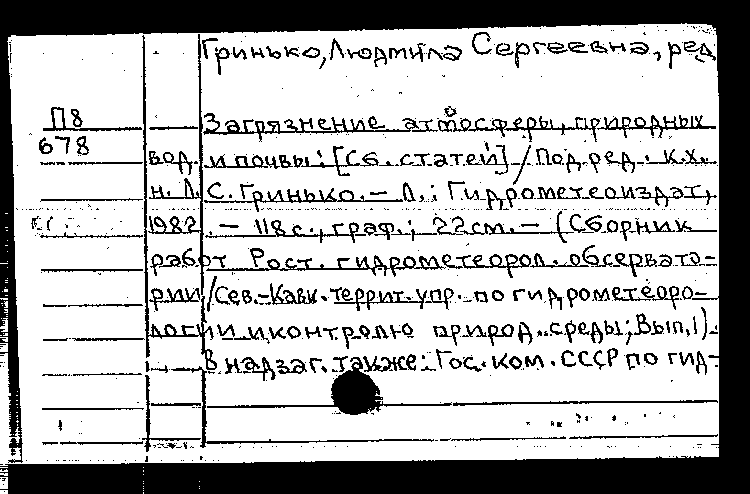 Гринько, Людмила Сергеевна, ред
П8
Загрязнение атмосферы, природных
678
вод и почвы: [Сб. статей] / Под ред. к.х.
н. Л. С. Гринько. — Л.: Гидрометеоиздат,
1982. — 118 с., граф.; 22 см. — (Сборник
работ Рост. гидрометеорол. обсервато-
рии / Сев.-Кавк. террит. упр. по гидрометеоро-
логии и контролю природ. среды; Вып. 1).
В надзаг. также: Гос. ком. СССР по гид-